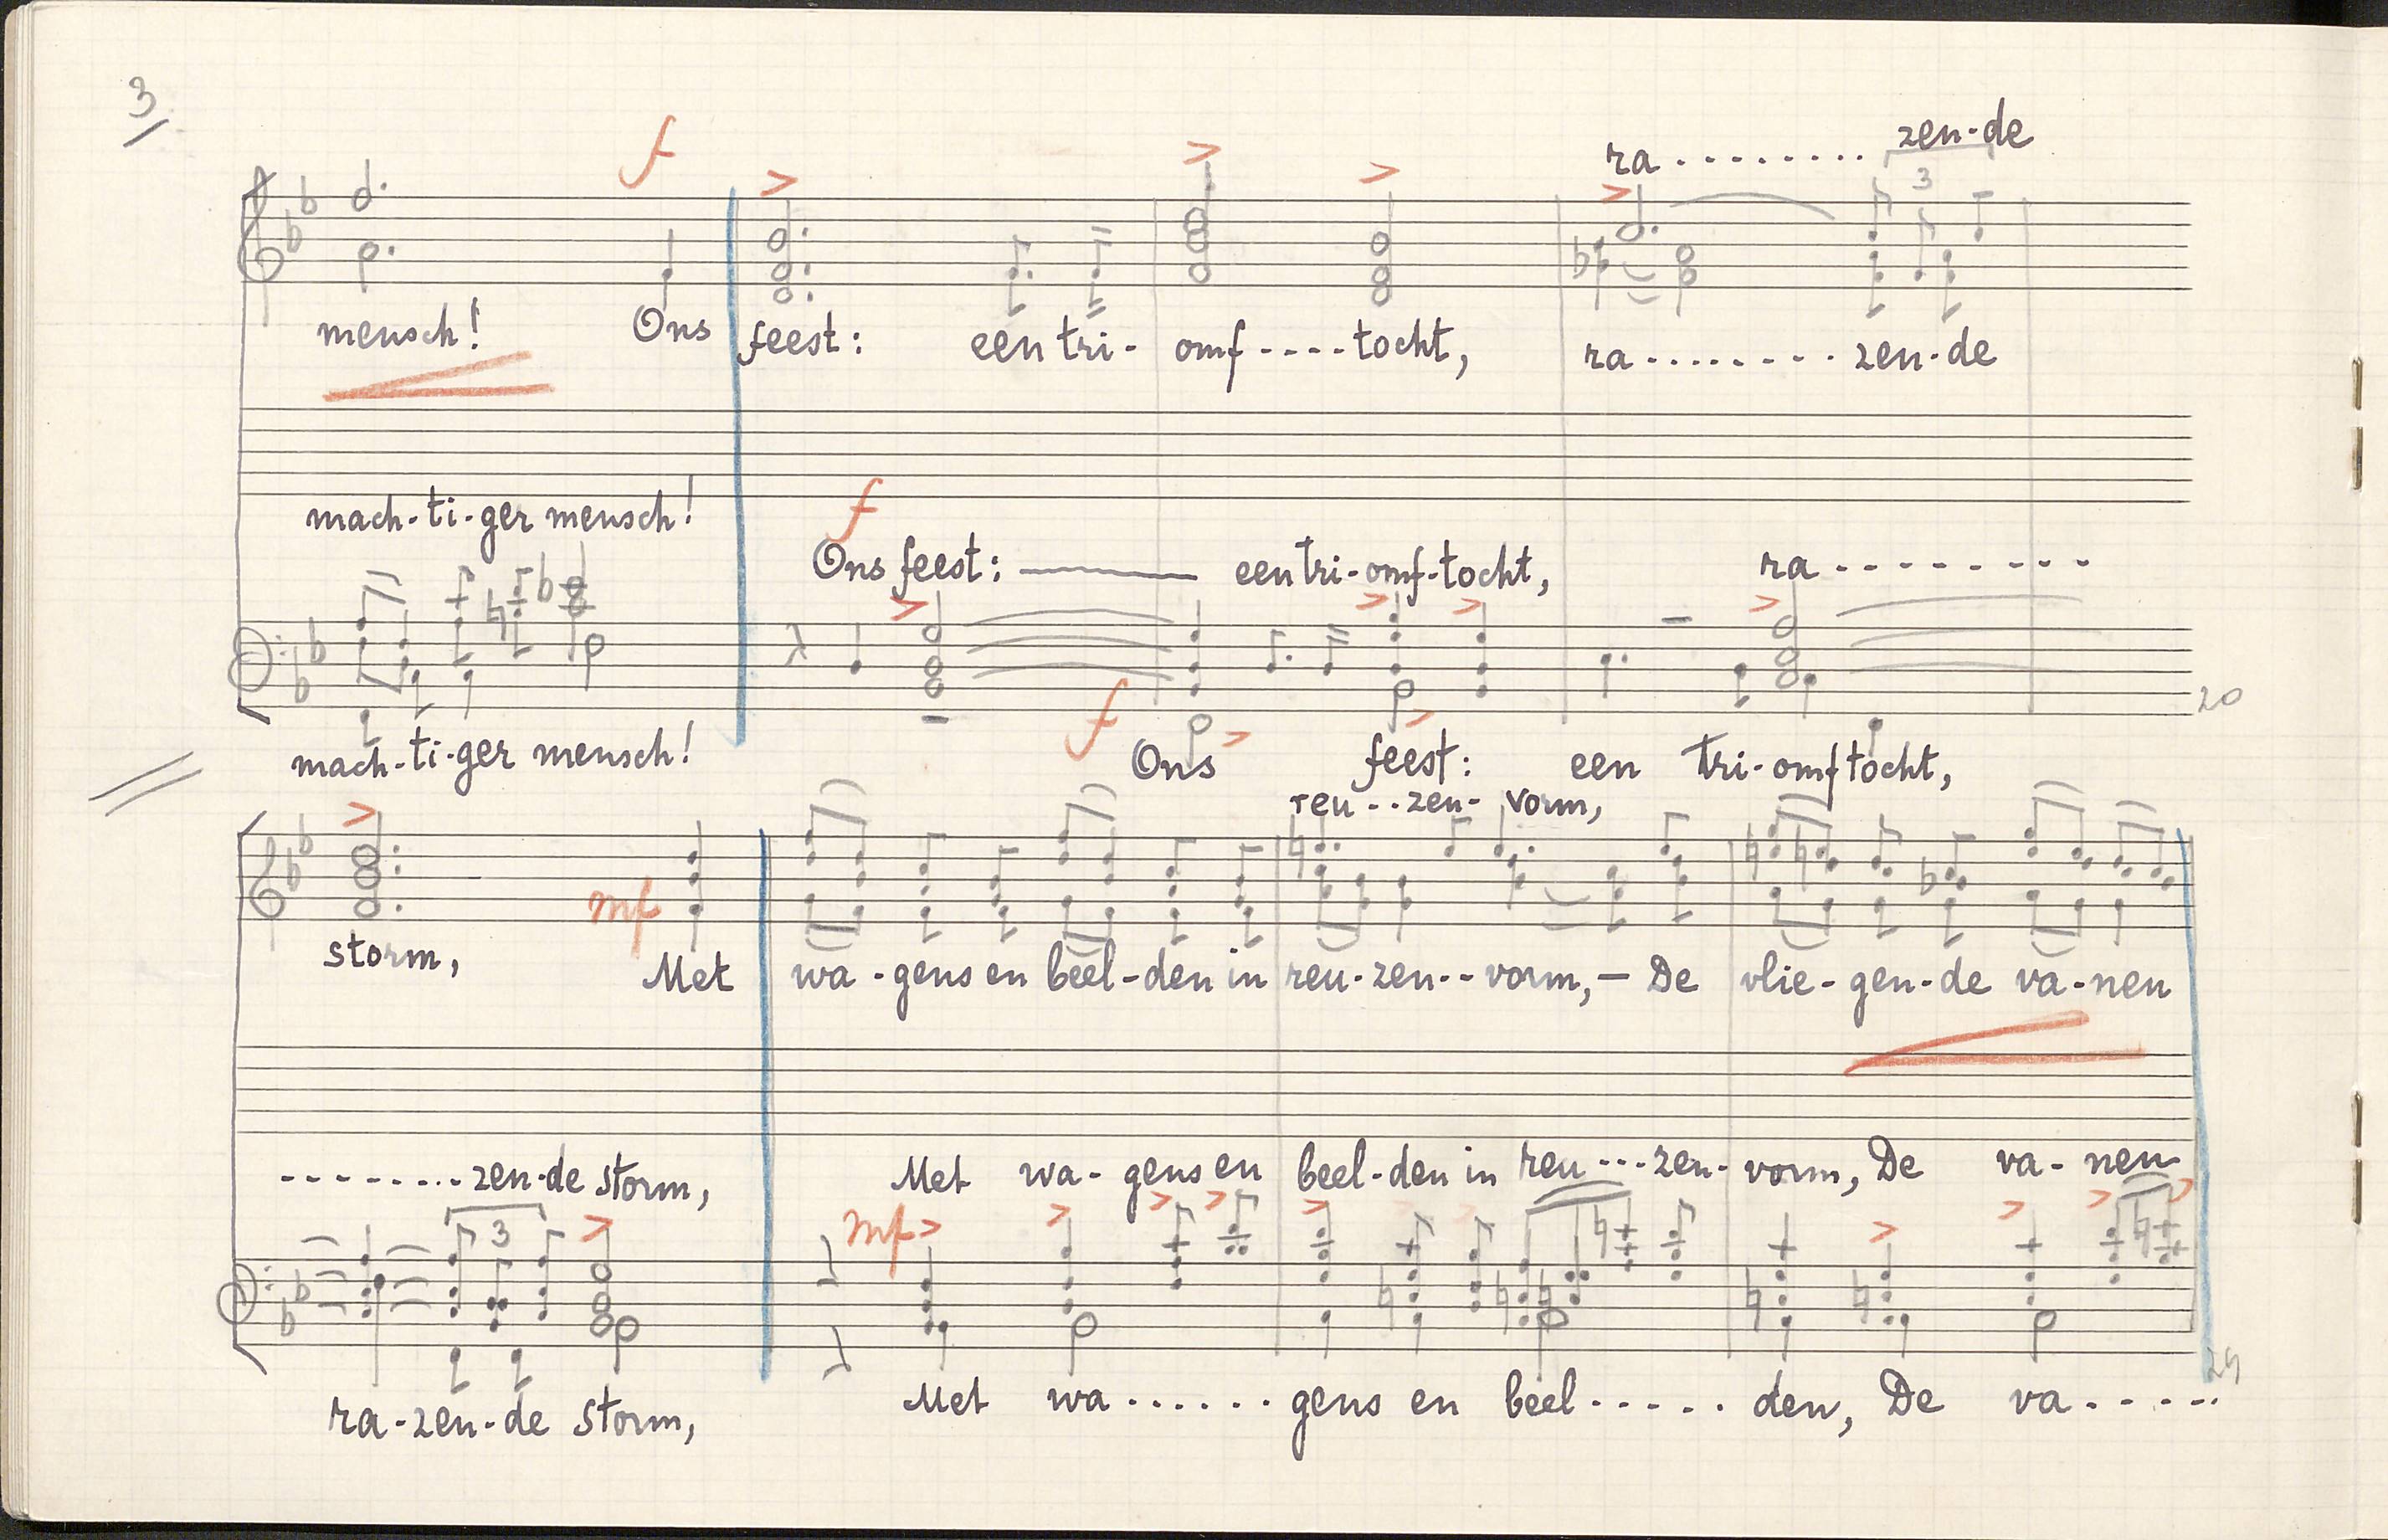 3
f
ra......... zen-de
3
mensch! Ons feest: een tri- omf----tocht, ra........ zen-de
mach-ti-ger mensch!
f
Ons feest: een tri-omf-tocht, ra---------
20
f
mach-ti-ger mensch! Ons feest: een tri-omf tocht,
reu--zen- vorm,
mf
storm, Met wa-gens en beel-den in reu-zen--vorm,— De vlie-gen-de va-nen
--------zen-de storm, Met wa-gens en beel-den in reu---zen-vorm, De va-nen
3 mf
24
ra-zen-de storm, Met wa...... gens en beel..... den, De va.....